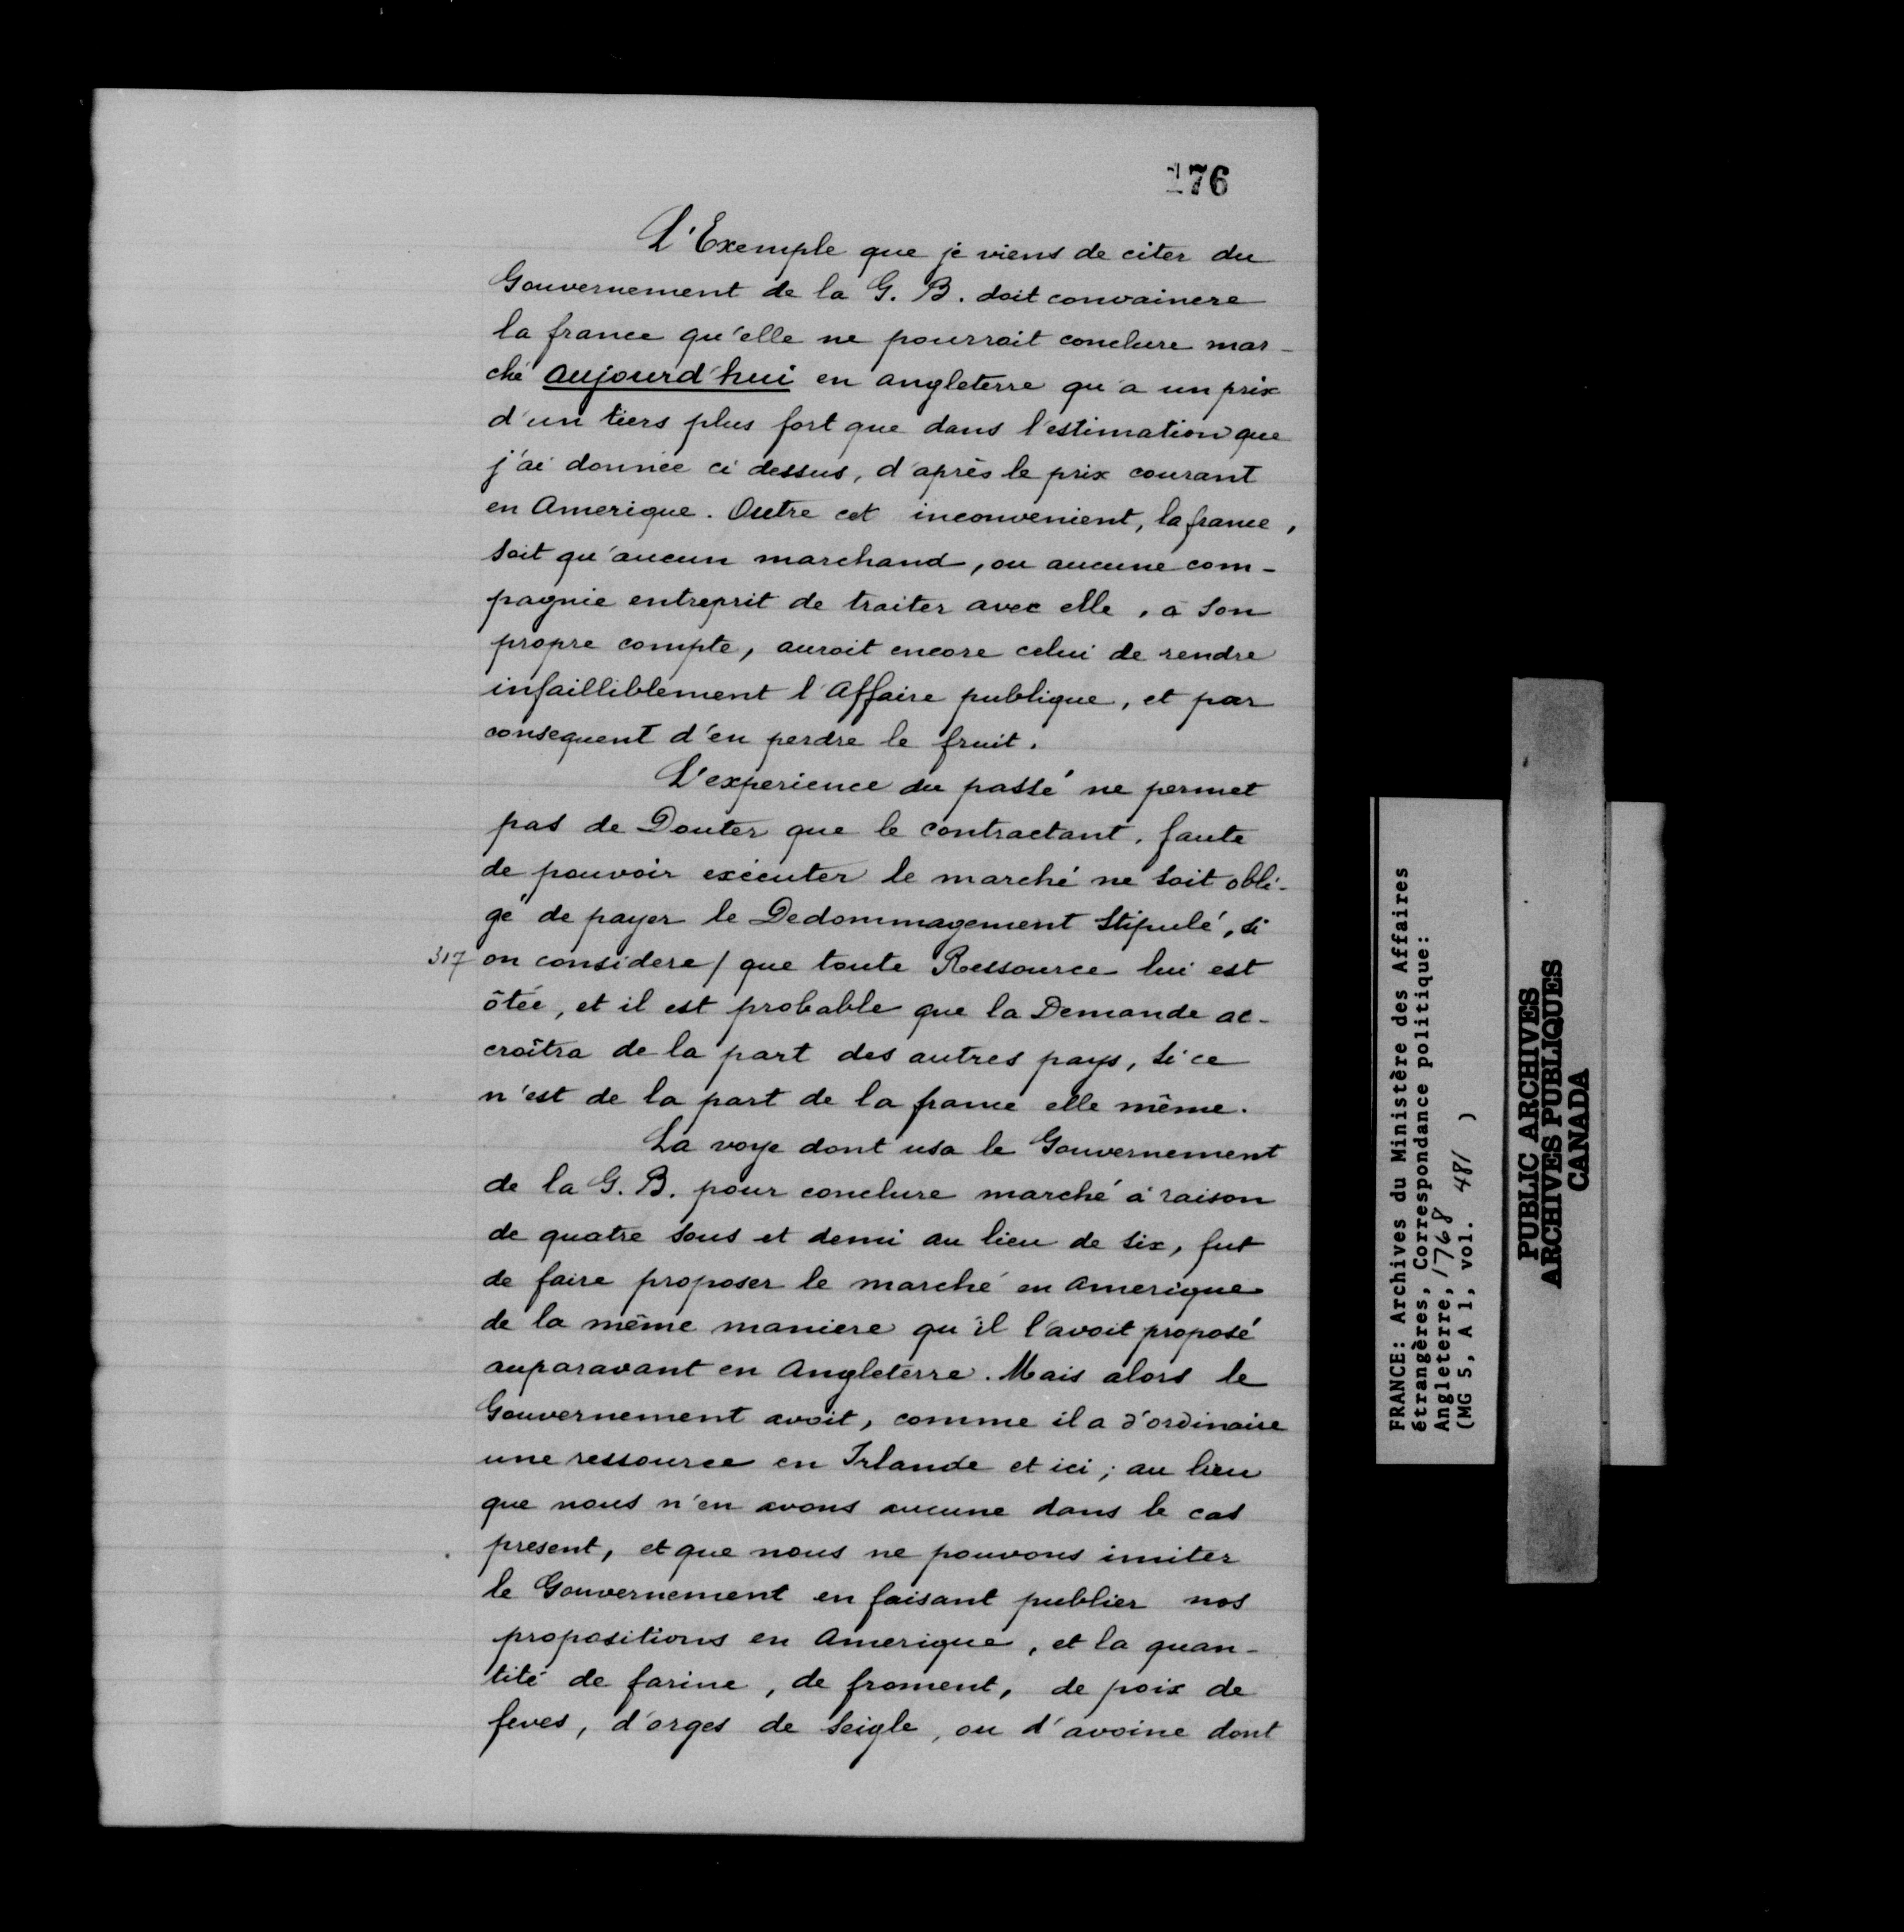 176
L'Exemple que je viens de citer du
Gouvernement de la G. B. doit convaincre
la france qu'elle ne pourrait conclure mar-
ché aujourd'hui en angleterre qu'a un prix
d'un tiers plus fort que dans l'estimation que
j'ai donnée ci dessus, d'après le prix courant
en Amerique. Outre cet inconvenient, la france,
soit qu'aucun marchand, ou aucune com-
pagnie entreprit de traiter avec elle, à son
propre compte, auroit encore celui de rendre
infailliblement l'Affaire publique, et par
consequent d'en perdre le fruit.
L'experience du passé ne permet
pas de Douter que le contractant, faute
de pouvoir exécuter le marché ne soit obli-
gé de payer le Dedommagement Stipulé, si
317 on considere / que toute Ressource lui est
ôtée, et il est probable que la Demande ac-
croîtra de la part des autres pays, si ce
n'est de la part de la france elle même.
La voye dont usa le Gouvernement
de la G. B. pour conclure marché à raison
de quatre sous et demi au lieu de six, fut
de faire proposer le marché en Amerique
de la même maniere qu'il l'avoit proposé
auparavant en Angleterre. Mais alors le
Gouvernement avoit, comme il a d'ordinaire
une ressource en Irlande et ici; au lieu
que nous n'en avons aucune dans le cas
present, et que nous ne pouvons imiter
le Gouvernement en faisant publier nos
propositions en Amerique, et la quan-
tité de farine, de froment, de poix de
feves, d'orges de Seigle, ou d'avoine dont
FRANCE: Archives du Ministère des Affaires
étrangères, Correspondance politique:
Angleterre, 1768
(MG 5, A 1, vol. 481 )
PUBLIC ARCHIVES
ARCHIVES PUBLIQUES
CANADA